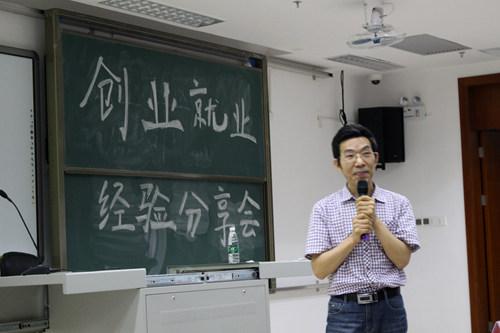 创业就业
经验分享会